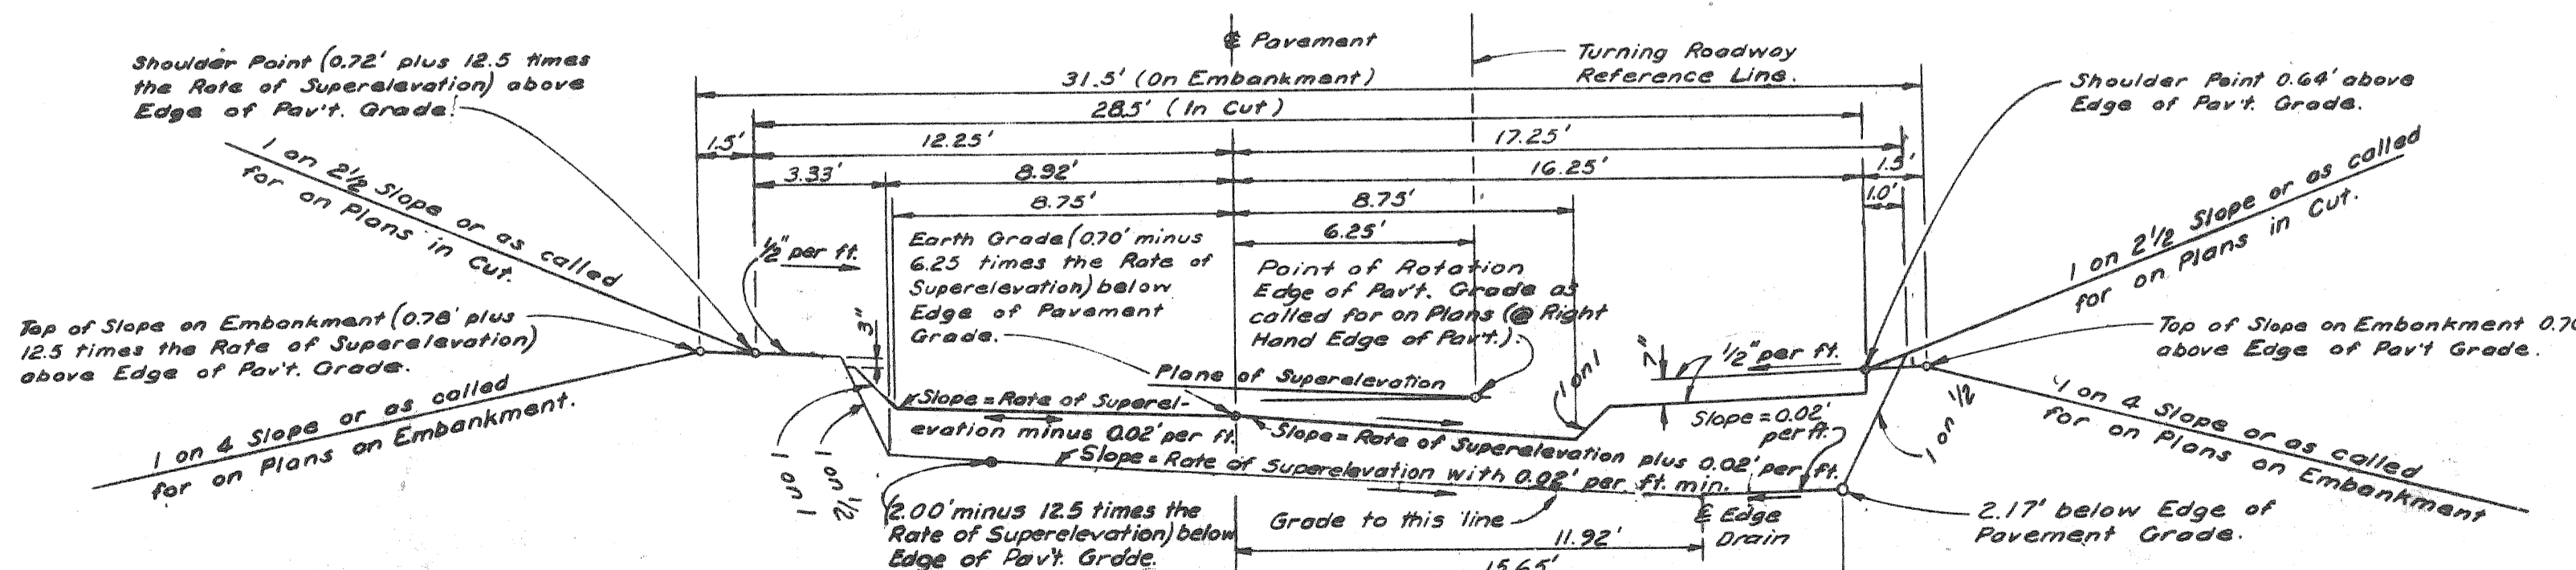 Shoulder Point (0.72' plus 12.5 times
the Rate of Superelevation) above
Edge of Pav't. Grade.
℄ Pavement
Turning Roadway
Reference Line.
Shoulder Point 0.64' above
Edge of Pav't. Grade.
31.5' (On Embankment)
28.5' (In Cut)
1.5'
12.25'
17.25'
3.33'
8.92'
16.25'
1.5'
8.75'
8.75'
1.0'
6.25'
1 on 2½ Slope or as called
for on Plans in Cut.
½" per ft.
Earth Grade (0.70' minus
6.25 times the Rate of
Superelevation) below
Edge of Pavement
Grade.
Point of Rotation
Edge of Pav't. Grade as
called for on Plans (@ Right
Hand Edge of Pav't.).
1 on 2½ Slope or as called
for on Plans in Cut.
Top of Slope on Embankment (0.78' plus
12.5 times the Rate of Superelevation)
above Edge of Pav't. Grade.
3"
7"
½" per ft.
Top of Slope on Embankment
above Edge of Pav't Grade.
1 on 4 Slope or as called
for on Plans on Embankment.
Plane of Superelevation
1 on 1
Slope = Rate of Superel-
evation minus 0.02' per ft.
Slope = Rate of Superelevation plus 0.02' per ft.
Slope = 0.02'
per ft.
1 on ½
1 on 4 Slope or as called
for on Plans on Embankment
1 on 1
1 on ½
Slope = Rate of Superelevation with 0.02' per ft. min.
(2.00' minus 12.5 times the
Rate of Superelevation) below
Edge of Pav't. Grade.
Grade to this line
℄ Edge
Drain
2.17' below Edge of
Pavement Grade.
11.92'
15.65'